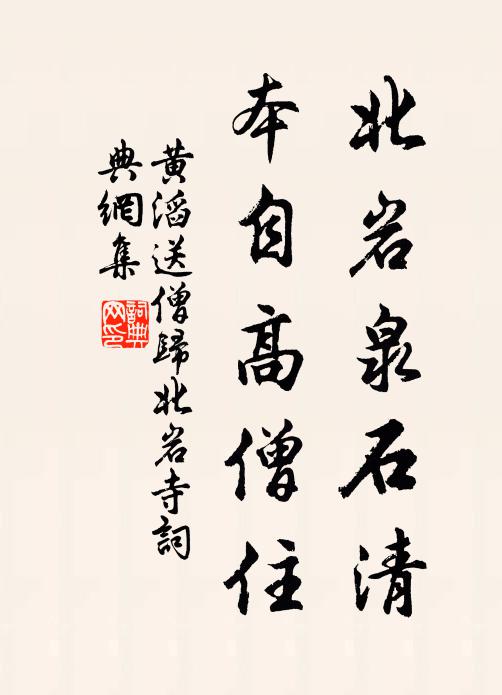 北岩泉石清
本自高僧住
黄滔送僧歸北岩寺詞
典網集
詞典網印